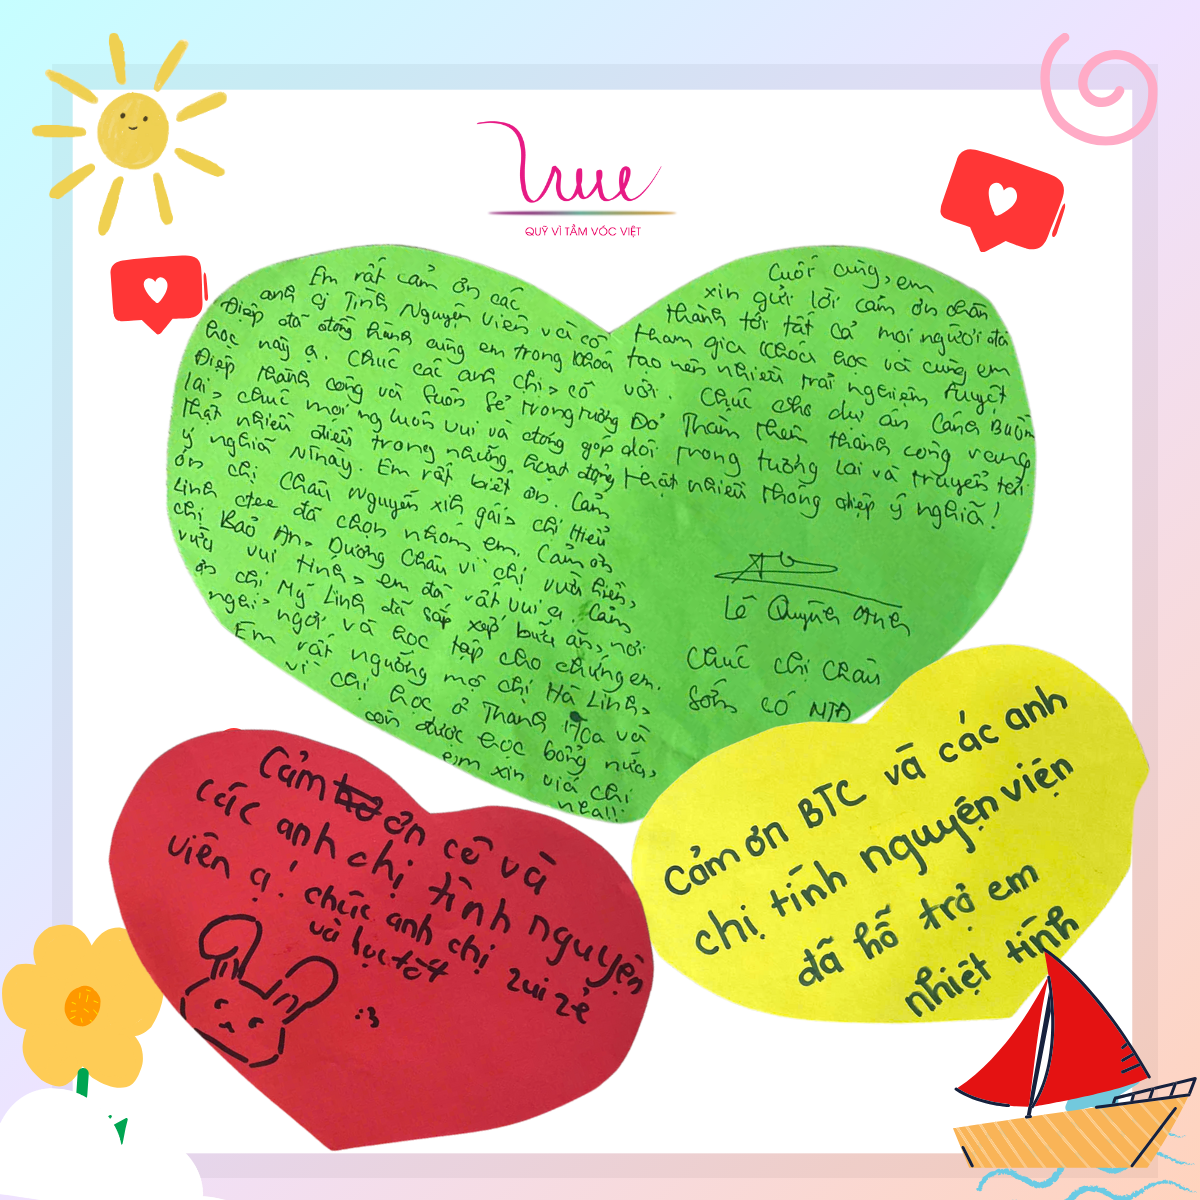 True
QUỸ VÌ TẦM VÓC VIỆT
Em rất cảm ơn các
anh chị Tình Nguyện Viên và cô
Điệp đã đồng hành cùng em trong khoá
học này ạ. Chúc các anh chị, cô
Điệp thành công và luôn sẻ trong tương
lai, chúc mọi ng luôn vui và đóng góp
thật nhiều điều trong những hoạt động
ý nghĩa ntnày. Em rất biết ơn. Cảm
ơn chị Châu Nguyễn xinh gái, chị Hiếu
Linh đã chọn nhóm em. Cảm ơn
chị Bảo An, Dương Châu vì chị vừa hiền,
vừa vui tính, em đã rất vui ạ. Cảm
ơn chị Mỹ Linh đã sắp xếp bữa ăn, nơi
nghỉ ngơi và học tập cho chúng em.
Em rất ngưỡng mộ chị Hà Linh,
vì chị học ở Thanh Hoá và
còn được học bổng nữa,
em xin vía chị
nha!!
Cuối cùng, em
xin gửi lời cám ơn chân
thành tới tất cả mọi người đã
tham gia khoá học và cùng em
tạo nên nhiều trải nghiệm tuyệt
vời. Chúc cho dự án Cánh Buồm
Đỏ Thắm thêm thành công vang
dội trong tương lai và truyền tới
thật nhiều thông điệp ý nghĩa!
Lê Quỳnh Anh
Chúc chị Châu
sớm có NTĐ
Cảm ơn cô và
các anh chị tình nguyện
viên ạ! chúc anh chị zui zẻ
và học tốt
:3
Cảm ơn BTC và các anh
chị tình nguyện viện
đã hỗ trợ em
nhiệt tình